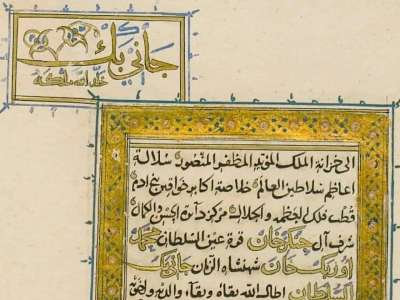 جاني بك
خلد الله ملكه
الى خزانة الملك المؤيد المظفر المنصور سلالة
اعاظم سلاطين العالم خلاصة اكابر خواقين بني ادم
قطب فلك العظمة والجلالة مركز دائرة الحسن والكمال
شرف آل جنكز خان قرة عين السلطان محمد
اوزبك خان شهنشاه الزمان جاني بك
السلطان اطال الله بقاه وبقاء والديه